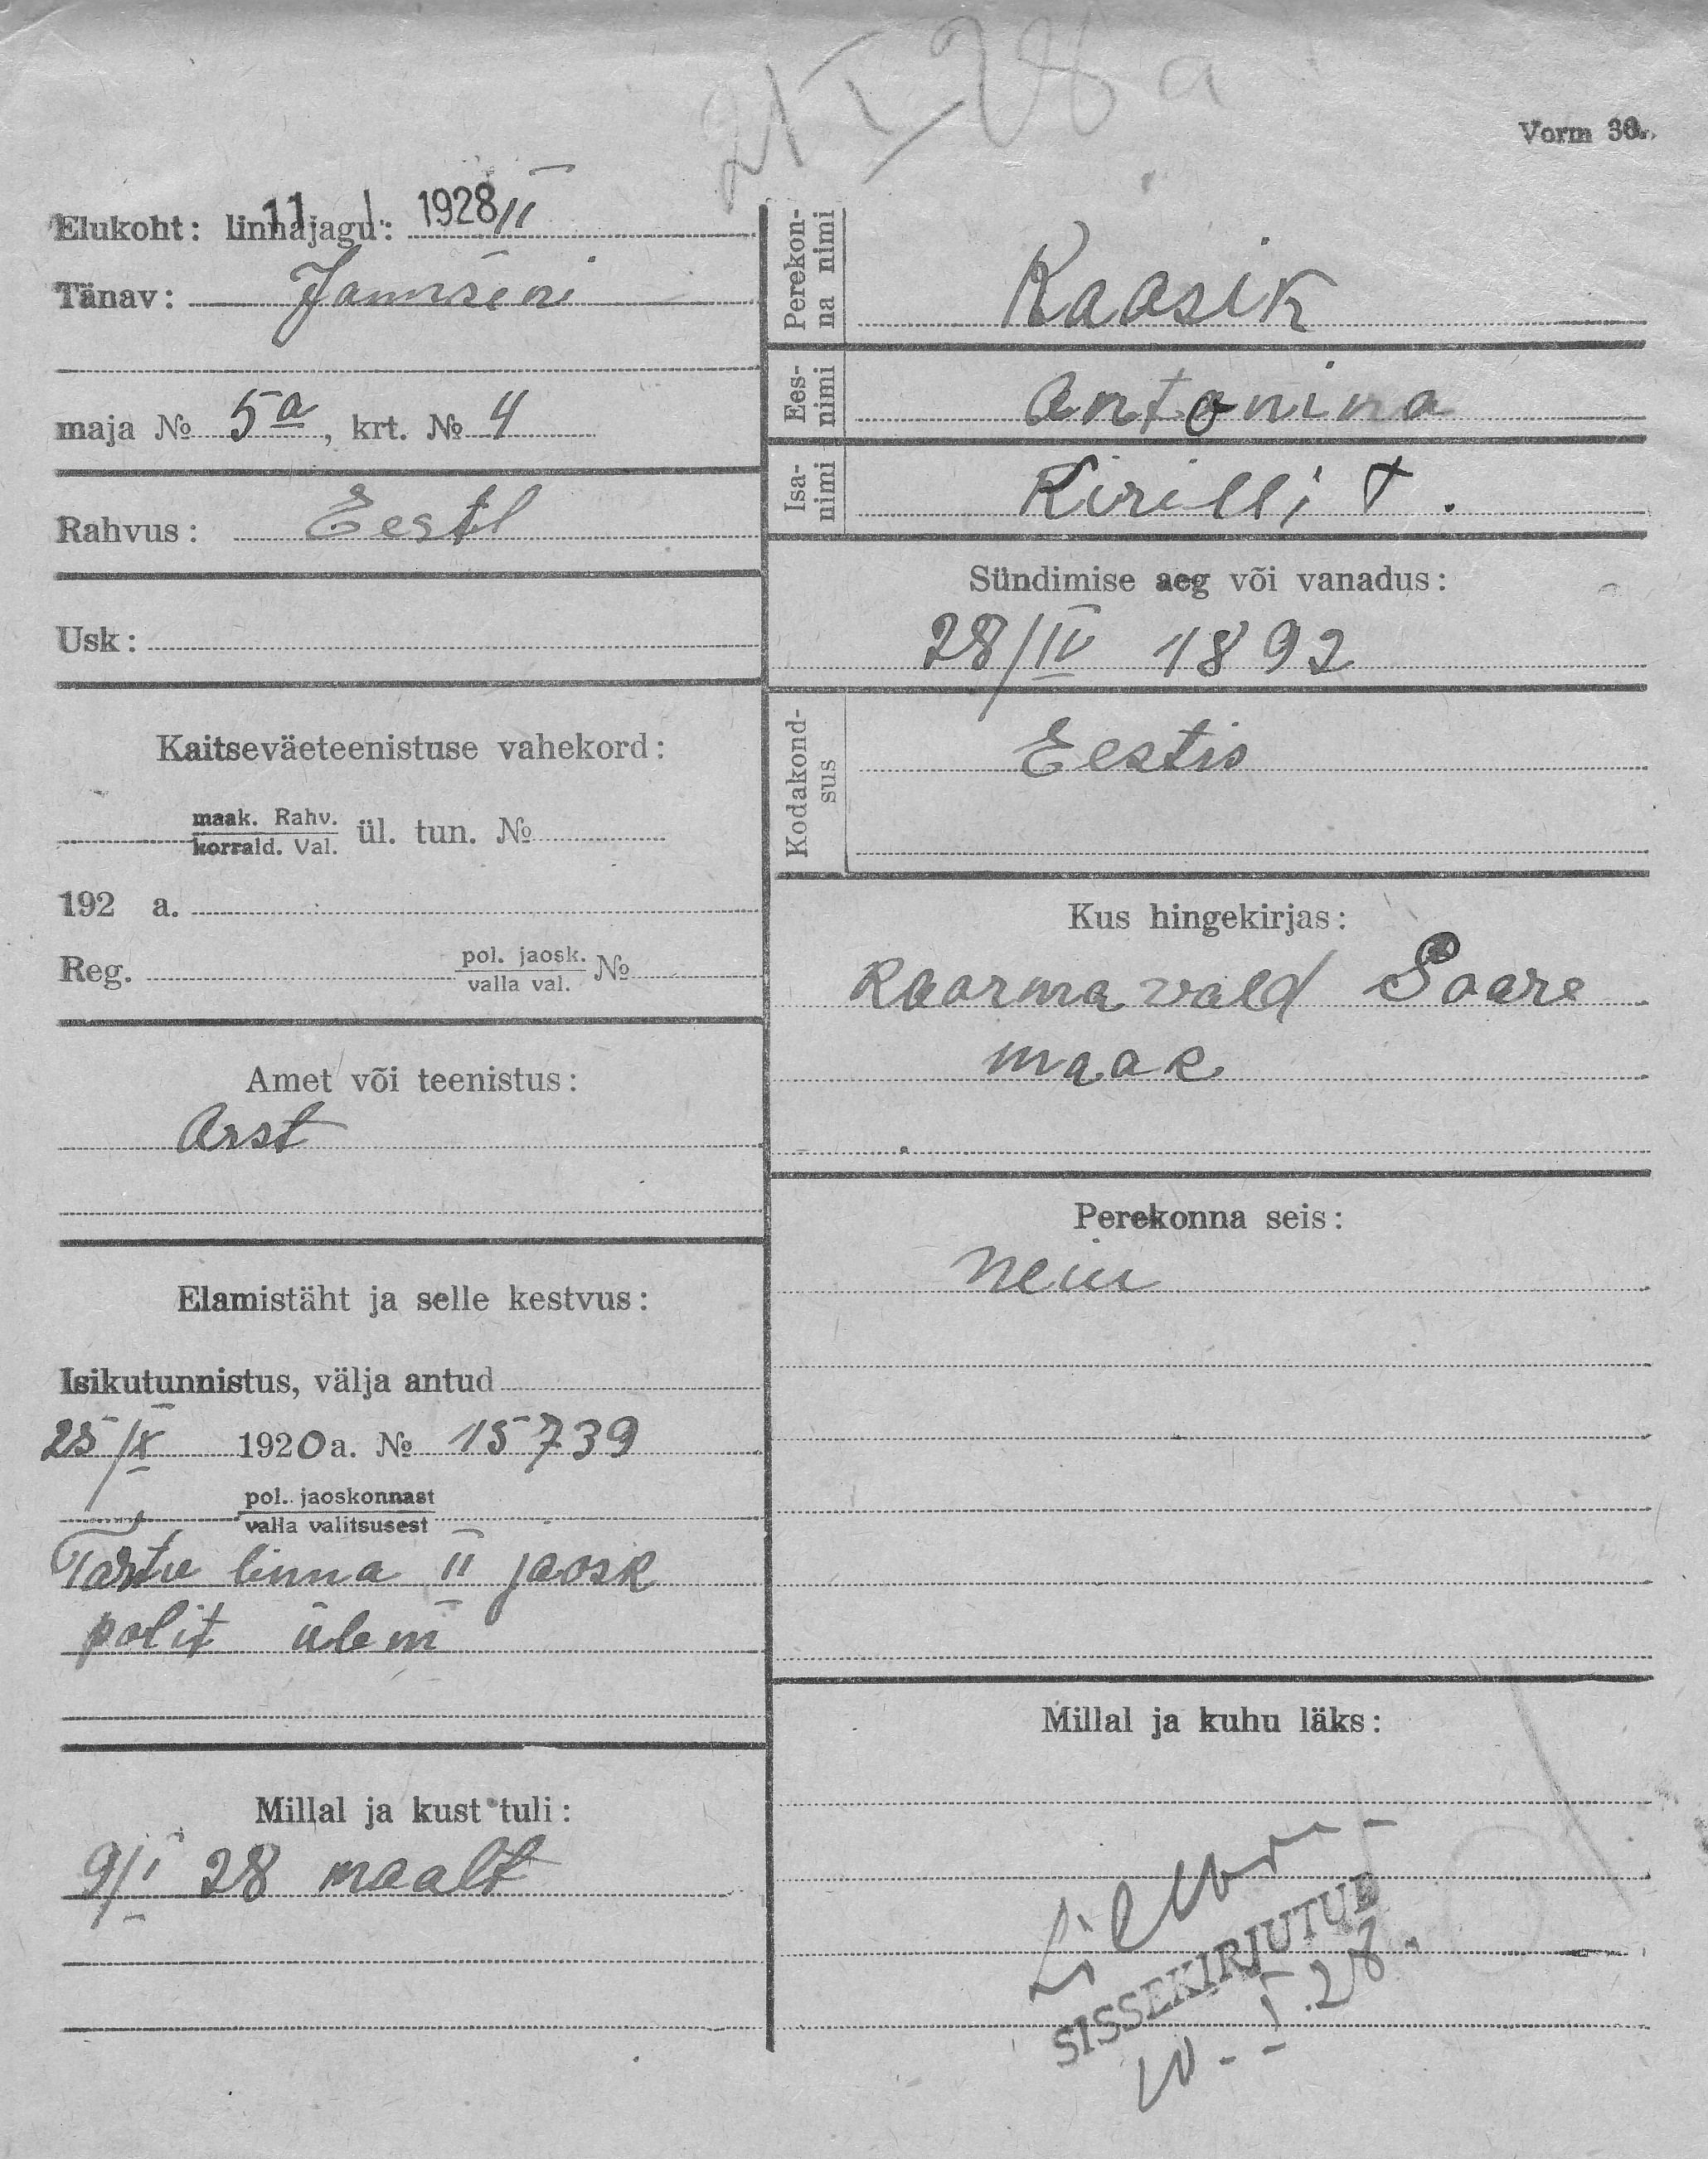 21 I 28 a
Vorm 30.
11 I 1928
Elukoht: linnajagu: II
Tänav: Jannseni
maja № 5a, krt. № 4
Rahvus: Eesti
Usk:
Kaitseväeteenistuse vahekord:
maak. Rahv.
korrald. Val. ül. tun. №
192 a.
Reg. pol. jaosk. №
valla val.
Amet või teenistus:
Arst
Elamistäht ja selle kestvus:
Isikutunnistus, välja antud
25/X 1920 a. № 15739
pol. jaoskonnast
valla valitsusest
Tartu linna II jaosk
polit ülem
Millal ja kust tuli:
9/I 28 maalt
Perekon-
na nimi
Kaasik
Ees-
nimi
Antonina
Isa-
nimi
Kirilli t.
Sündimise aeg või vanadus:
28/IV 1892
Kodakond-
sus
Eestis
Kus hingekirjas:
Kaarma vald Saare
maak
Perekonna seis:
Neiu
Millal ja kuhu läks:
SISSEKIRJUTUD
10. I. 28.